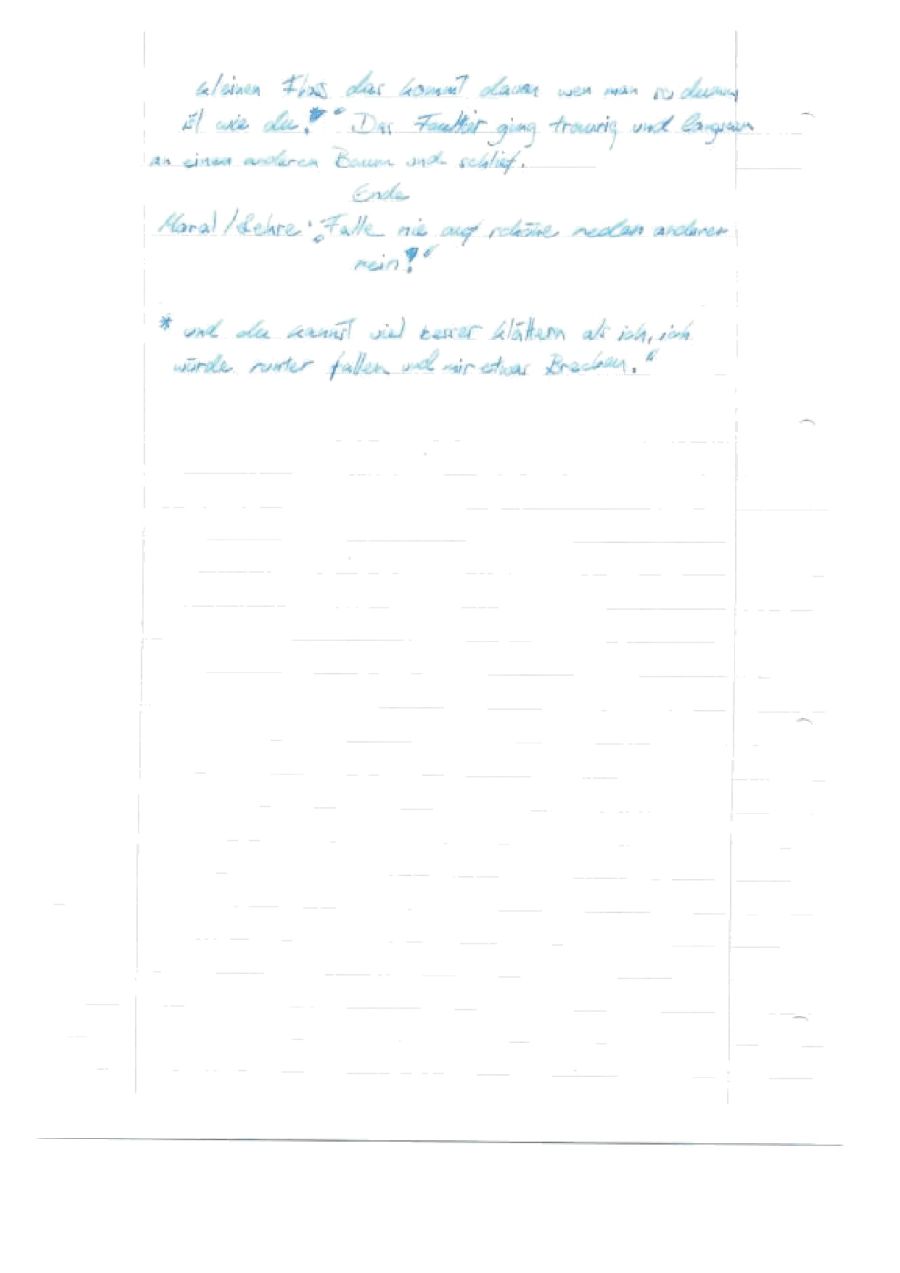 kleinen Fluss das kommt davon wen man so dumm
ist wie du!" Das Faultier ging traurig und langsam
an einen anderen Baum und schlief.
Ende
Moral/Lehre: "Falle nie auf schöne reden anderer
rein!"
* und du kannst viel besser klättern als ich, ich
würde runter fallen und mir etwas Brechen."